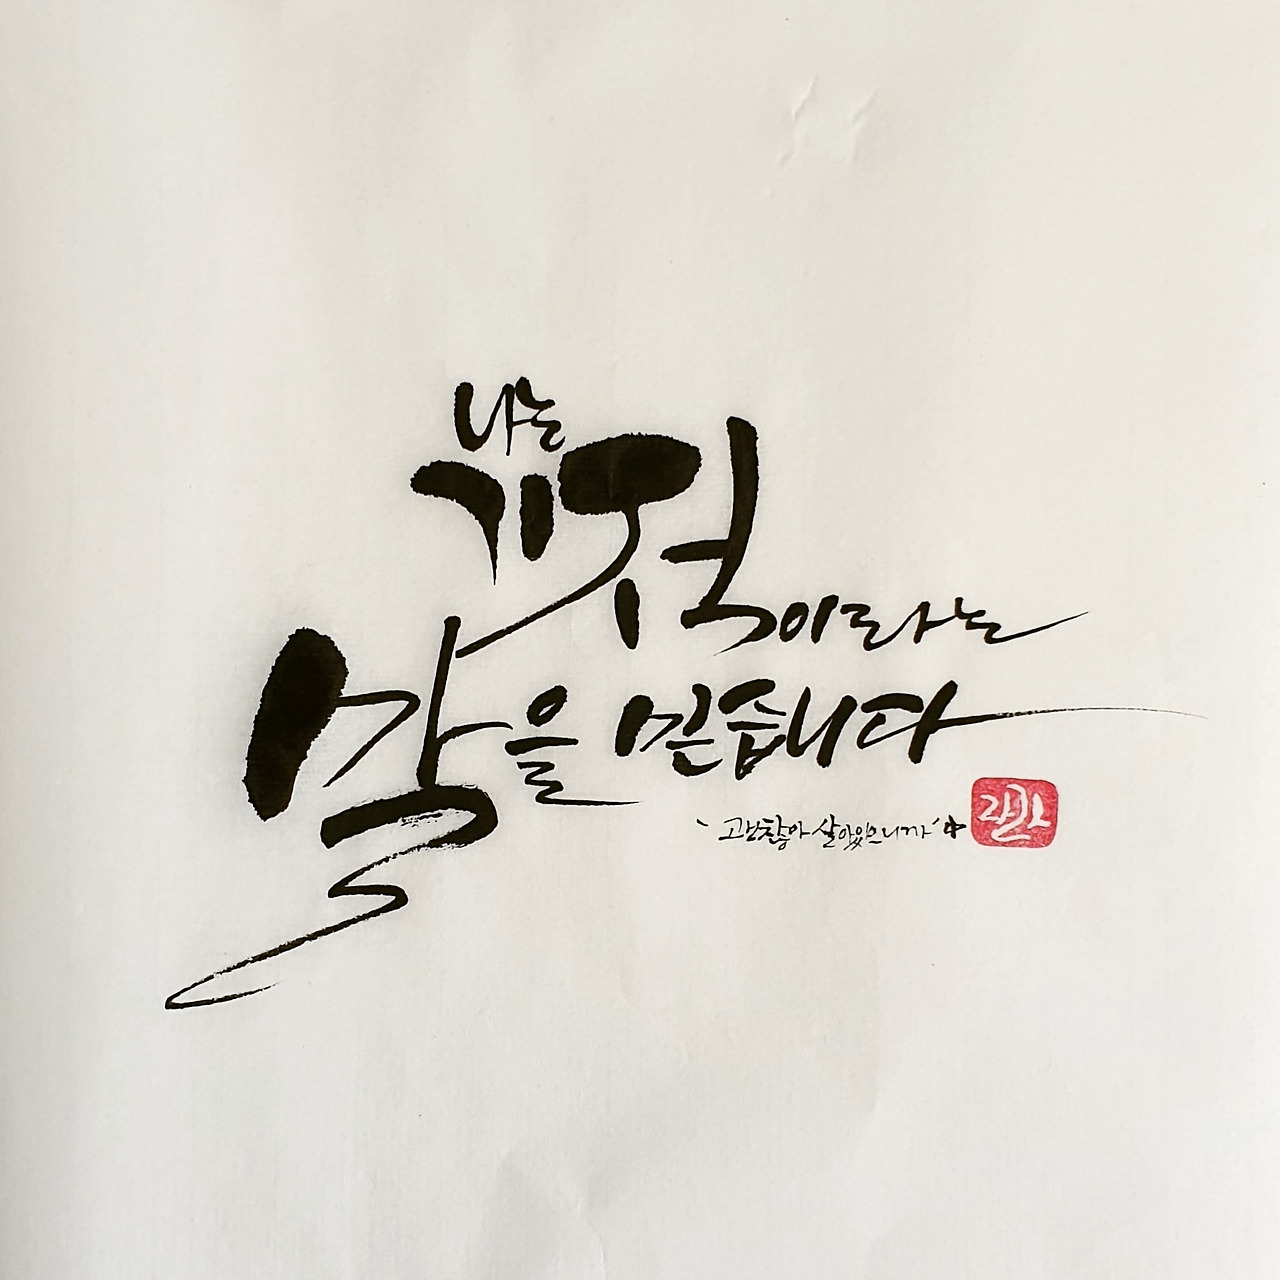 나는
기적이라는
말을 믿습니다
'괜찮아 살아있으니까' 中